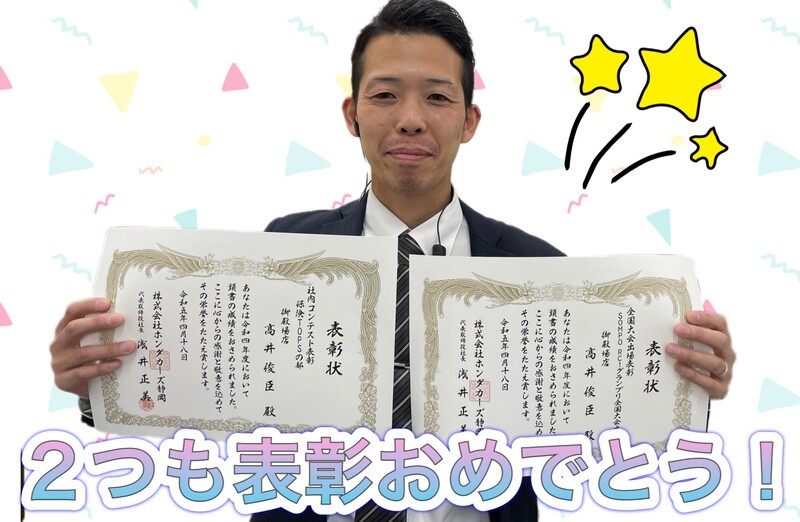 表彰状
社内コンテスト表彰
保険TOPSの部
御殿場店
高井俊臣 殿
あなたは令和四年度において
頭書の成績をおさめられました。
ここに心からの感謝と敬意を込めて
その栄誉をたたえ賞します。
令和五年四月十八日
株式会社ホンダカーズ静岡
代表取締役社長 浅井正義
表彰状
全国大会出場表彰
SOMPO RC-1グランプリ全国大会
御殿場店
高井俊臣 殿
あなたは令和四年度において
頭書の成績をおさめられました。
ここに心からの感謝と敬意を込め
その栄誉をたたえ賞します。
令和五年四月十八日
株式会社ホンダカーズ静岡
代表取締役社長 浅井正
2つも表彰おめでとう！